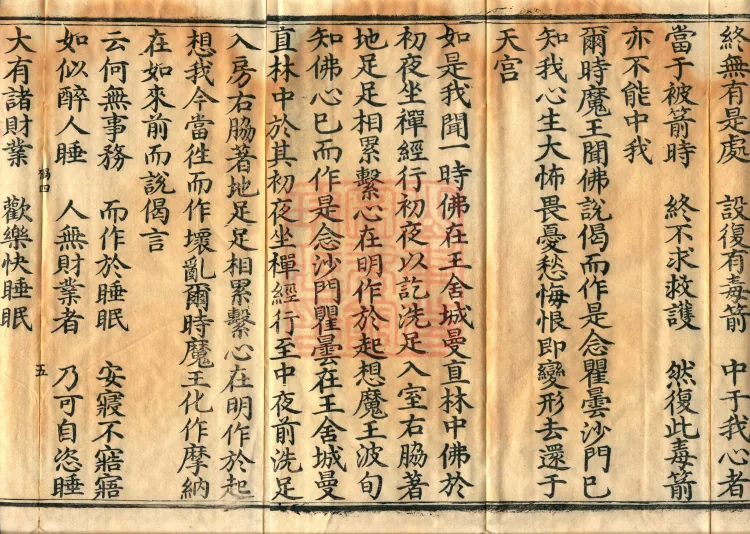 終無有是處　設復有毒箭　中于我心者
當于被箭時　終不求救護　然復此毒箭
亦不能中我
爾時魔王聞佛說偈而作是念瞿曇沙門已
知我心生大怖畏憂愁悔恨即變形去還于
天宮
如是我聞一時佛在王舍城曼直林中佛於
初夜坐禪經行初夜以訖洗足入室右脇著
地足足相累繫心在明作於起想魔王波旬
知佛心已而作是念沙門瞿曇在王舍城曼
直林中於其初夜坐禪經行至中夜前洗足
入房右脇著地足足相累繫心在明作於起
想我今當往而作壞亂爾時魔王化作摩納
在如來前而說偈言
云何無事務　而作於睡眠　安寢不寤寤
如似醉人睡　人無財業者　乃可自恣睡
五
大有諸財業　歡樂快睡眠